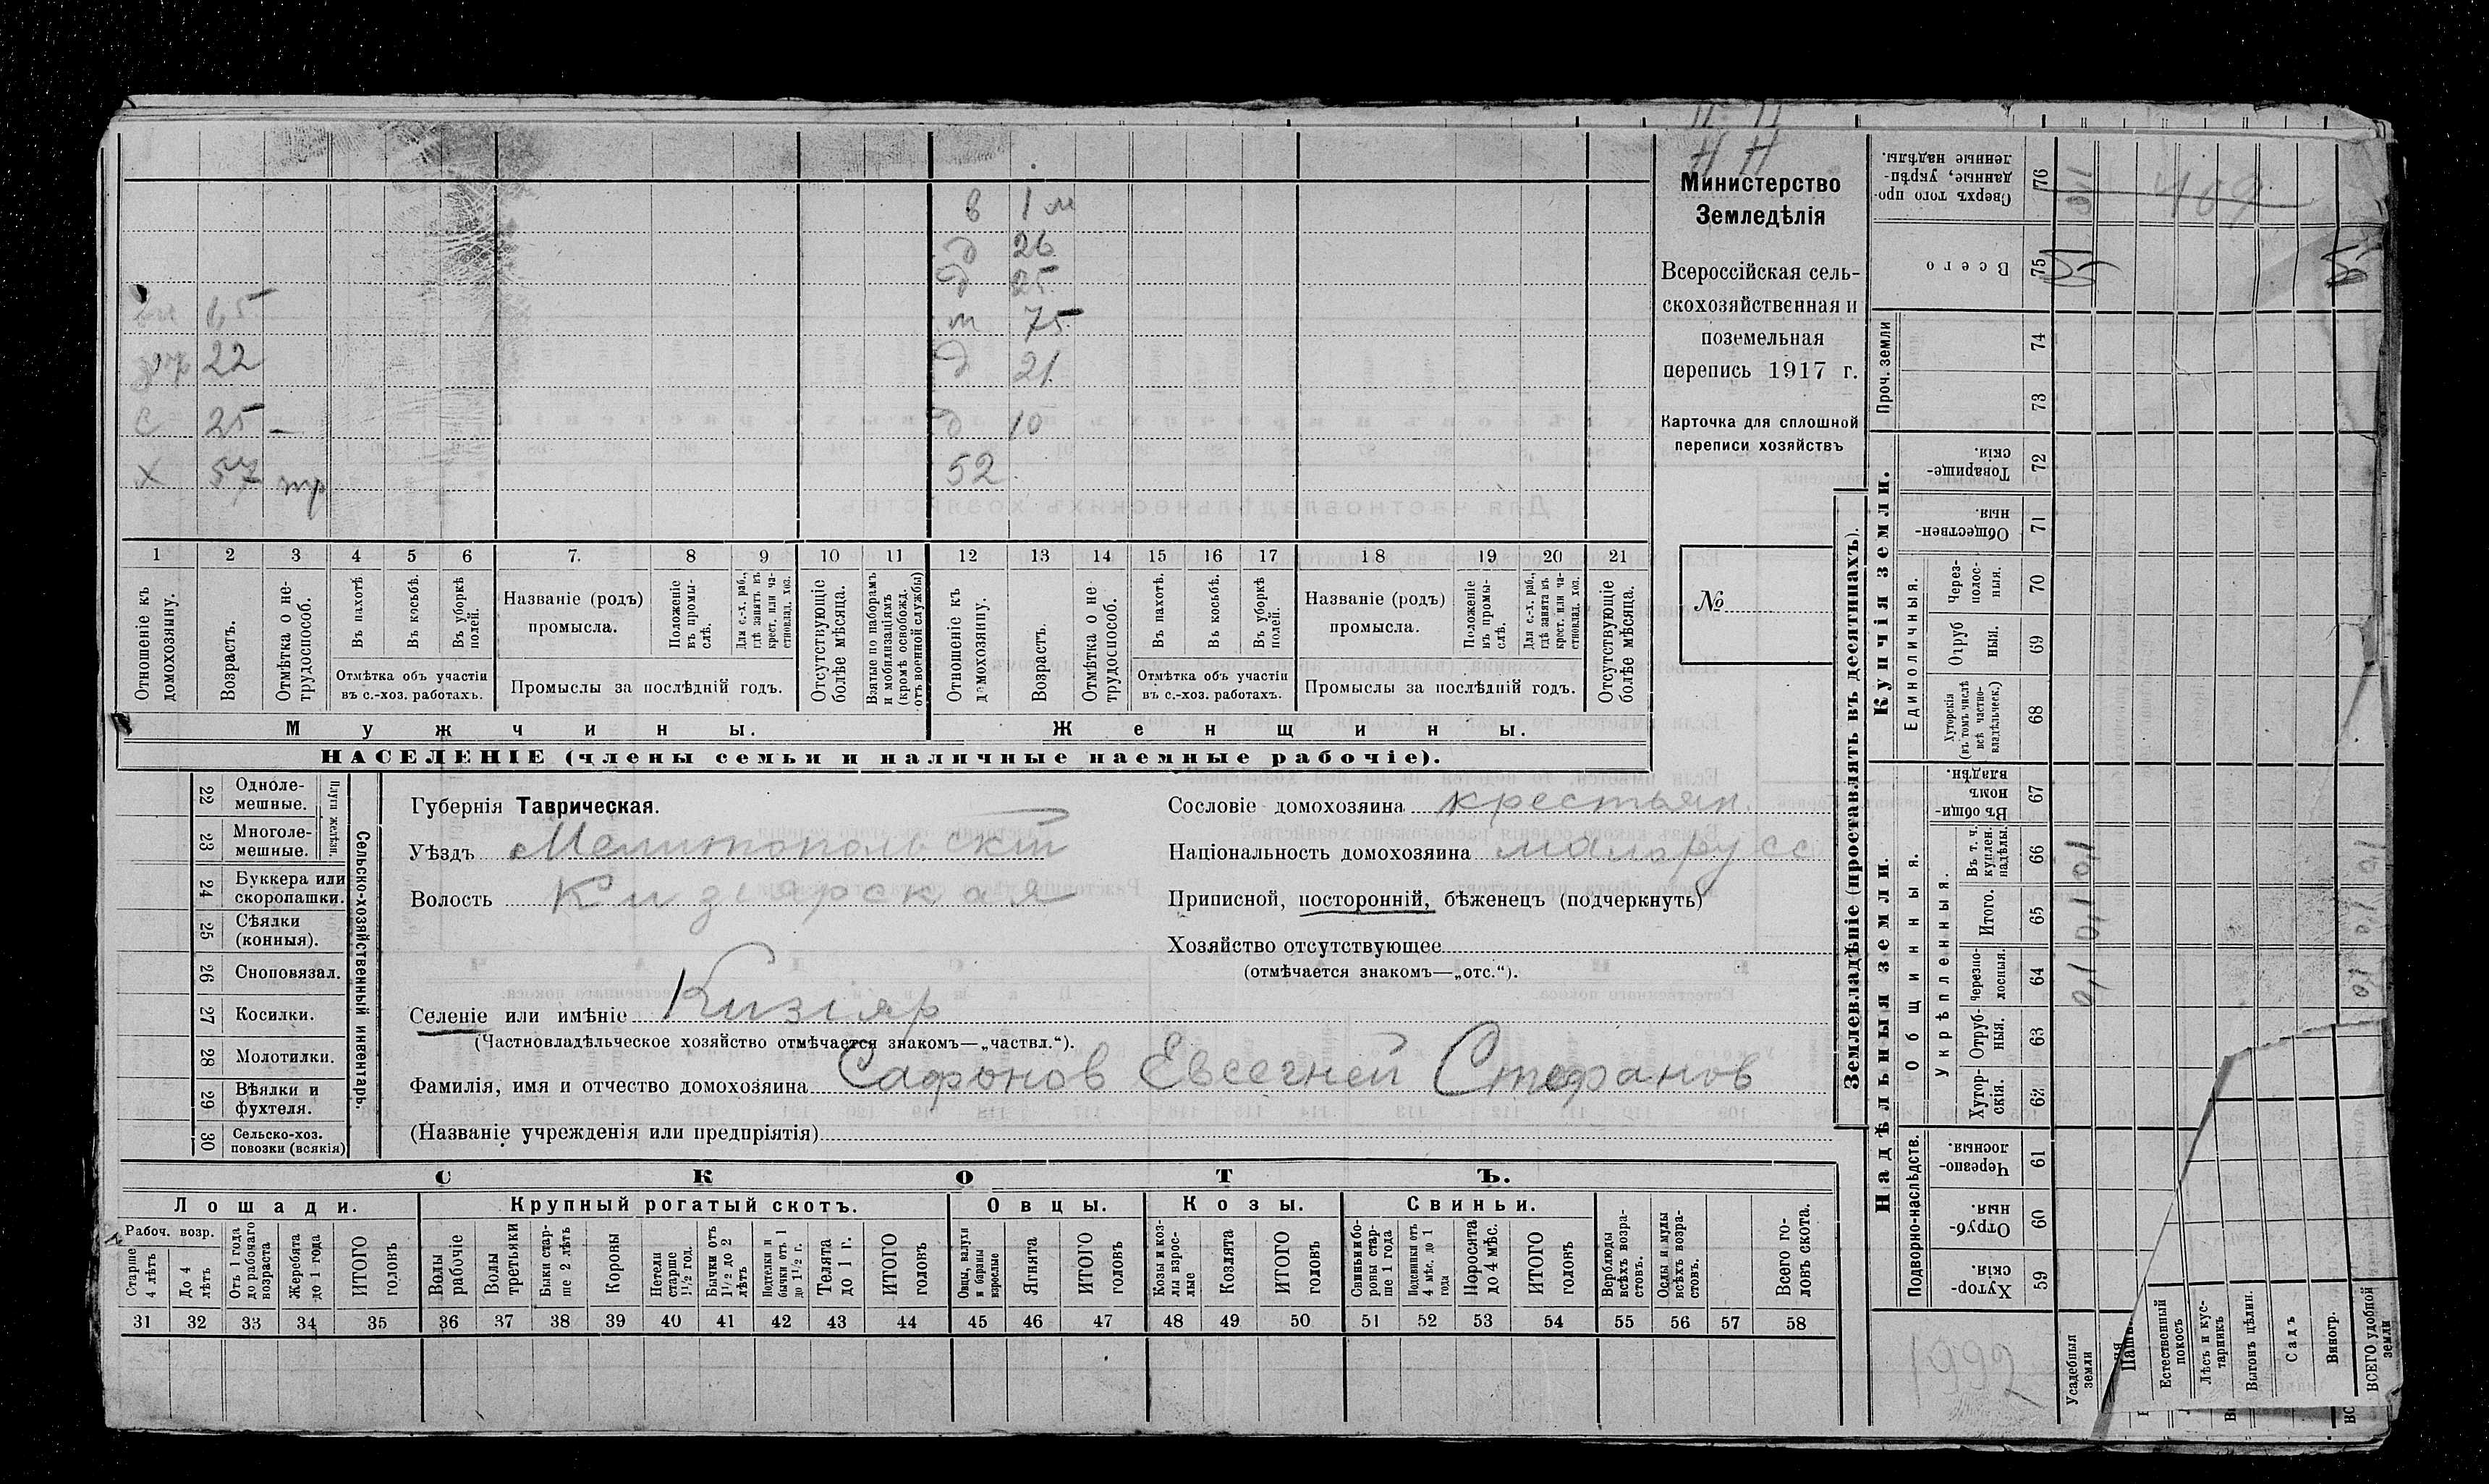 Н Н
Министерство
Земледѣлія
Всероссійская сель-
скохозяйственная и
поземельная
перепись 1917 г.
Карточка для сплошной
переписи хозяйствъ
№
в 1 м
д 26
д 25
1,5 м 75
22 д 21
с 25 — д 10
х 57 тр 52
1 2 3 4 5 6 7. 8 9 10 11 12 13 14 15 16 17 18 19 20 21
Отношеніе къ домохозяину.
Возрастъ.
Отмѣтка о не-трудоспособ.
Въ пахотѣ
Въ косьбѣ.
Въ уборкѣ полей.
Отмѣтка объ участіи
въ с.-хоз. работахъ.
Названіе (родъ)
промысла.
Положеніе въ промы-слѣ.
Для с.-х. раб., гдѣ занятъ въ крест. или ча-стновлад. хоз.
Промыслы за послѣдній годъ.
Отсутствующіе болѣе мѣсяца.
Взятые по наборамъ и мобилизаціямъ (кромѣ освобожд. отъ военной службы)
Отношеніе къ домохозяину.
Возрастъ.
Отмѣтка о не трудоспособ.
Въ пахотѣ.
Въ косьбѣ.
Въ уборкѣ полей.
Отмѣтка объ участіи
въ с.-хоз. работахъ.
Названіе (родъ)
промысла.
Положеніе въ промы-слѣ.
Для с.-х. раб., гдѣ занята въ крест. или ча-стновлад. хоз.
Промыслы за послѣдній годъ.
Отсутствующіе болѣе мѣсяца.
Мужчины. Женщины.
НАСЕЛЕНІЕ (члены семьи и наличные наемные рабочіе).
22 Одноле-мешные.
23 Многоле-мешные.
Плуги желѣзн.
24 Буккера или скоропашки.
25 Сѣялки (конныя).
26 Сноповязал.
27 Косилки.
28 Молотилки.
29 Вѣялки и фухтеля.
30 Сельско-хоз. повозки (всякія)
Сельско-хозяйственный инвентарь.
Губернія Таврическая.
Уѣздъ Мелитопольскій
Волость Кизіярская
Сословіе домохозяина крестьян.
Національность домохозяина малорусс
Приписной, посторонній, бѣженецъ (подчеркнуть)
Хозяйство отсутствующее
(отмѣчается знакомъ—„отс.“).
Селеніе или имѣніе Кизіяр
(Частновладѣльческое хозяйство отмѣчается знакомъ—„частвл.“).
Фамилія, имя и отчество домохозяина Сафонов Евсегней Стефанов
(Названіе учрежденія или предпріятія)
СКОТЪ.
Лошади. Крупный рогатый скотъ. Овцы. Козы. Свиньи.
Рабоч. возр.
Старше 4 лѣтъ
До 4 лѣтъ
Отъ 1 года до рабочаго возраста
Жеребята до 1 года
ИТОГО головъ
Волы рабочіе
Волы третьяки
Быки стар-ше 2 лѣтъ
Коровы
Нетели старше 1½ год.
Бычки отъ 1½ до 2 лѣтъ
Подтелки и бычки отъ 1 до 1½ г.
Телята до 1 г.
ИТОГО головъ
Овцы, валухи и бараны взрослые
Ягнята
ИТОГО головъ
Козы и коз-лы взрос-лые
Козлята
ИТОГО головъ
Свиньи и бо-ровы стар-ше 1 года
Подсвинки отъ 4 мѣс. до 1 года
Поросята до 4 мѣс.
ИТОГО головъ
Верблюды всѣхъ возра-стовъ.
Ослы и мулы всѣхъ возра-стовъ.
Всего го-ловъ скота.
31 32 33 34 35 36 37 38 39 40 41 42 43 44 45 46 47 48 49 50 51 52 53 54 55 56 57 58
Землевладѣніе (проставлять въ десятинахъ).
Надѣльныя земли. Купчія земли.
Подворно-наслѣдств.
Общинныя.
Укрѣпленныя.
Единоличныя.
Проч. земли
Хутор-скія. 59
Отруб-ныя. 60
Черезпо-лосныя. 61
Хутор-скія. 62
Отруб-ныя. 63
Черезпо-лосныя. 64
Итого. 65
Въ т. ч. куплен. надѣлы. 66
Въ общин-номъ владѣн. 67
Хуторскія (въ томъ числѣ всѣ частно-владѣльческ.) 68
Отруб ныя. 69
Через-полос-ныя. 70
Обществен-ныя. 71
Товарище-скія. 72
73
74
Всего 75
Сверхъ того про-данные, укрѣп-ленные надѣлы. 76
0,1 0,1 0,1
469
1992
Усадебныя земли
Естественный покосъ
Лѣсъ и кус-тарникъ
Выгонъ цѣлин.
Садъ
Виногр.
ВСЕГО удобной земли